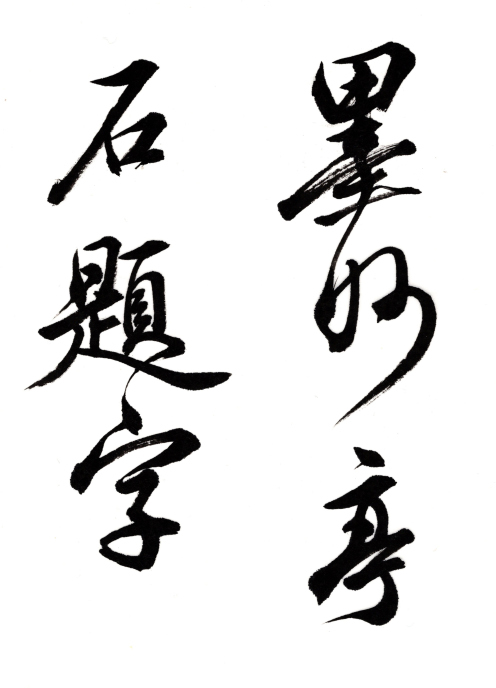 墨妙亭
石題字